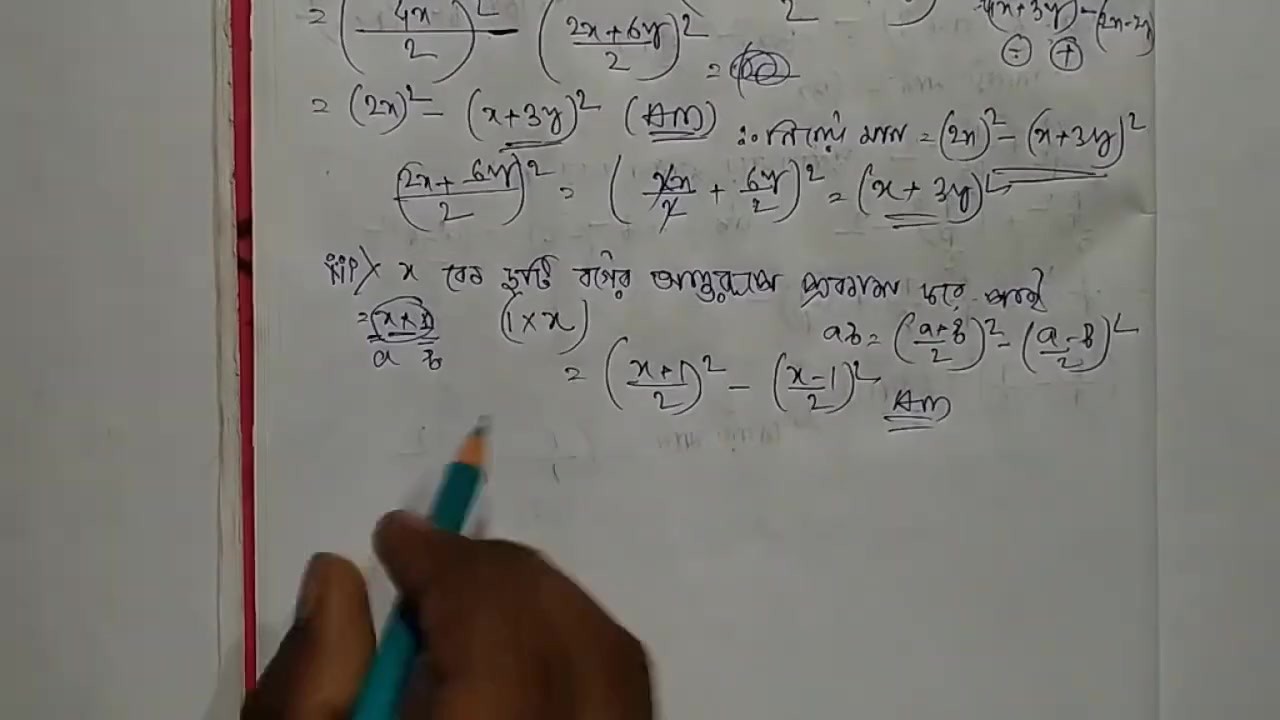 = (4x/2)² - (2x+6y/2)²
= (2x)² - (x+3y)² (Ans) ∴ নির্ণেয় মান = (2x)² - (x+3y)²
(2x+6y/2)² = (2x/2 + 6y/2)² = (x+3y)²
x কে দুটি বর্গের অন্তররূপে প্রকাশ করে
= (x×1) (1×x) ab = (a+b/2)² - (a-b/2)²
a b
= (x+1/2)² - (x-1/2)² Ans